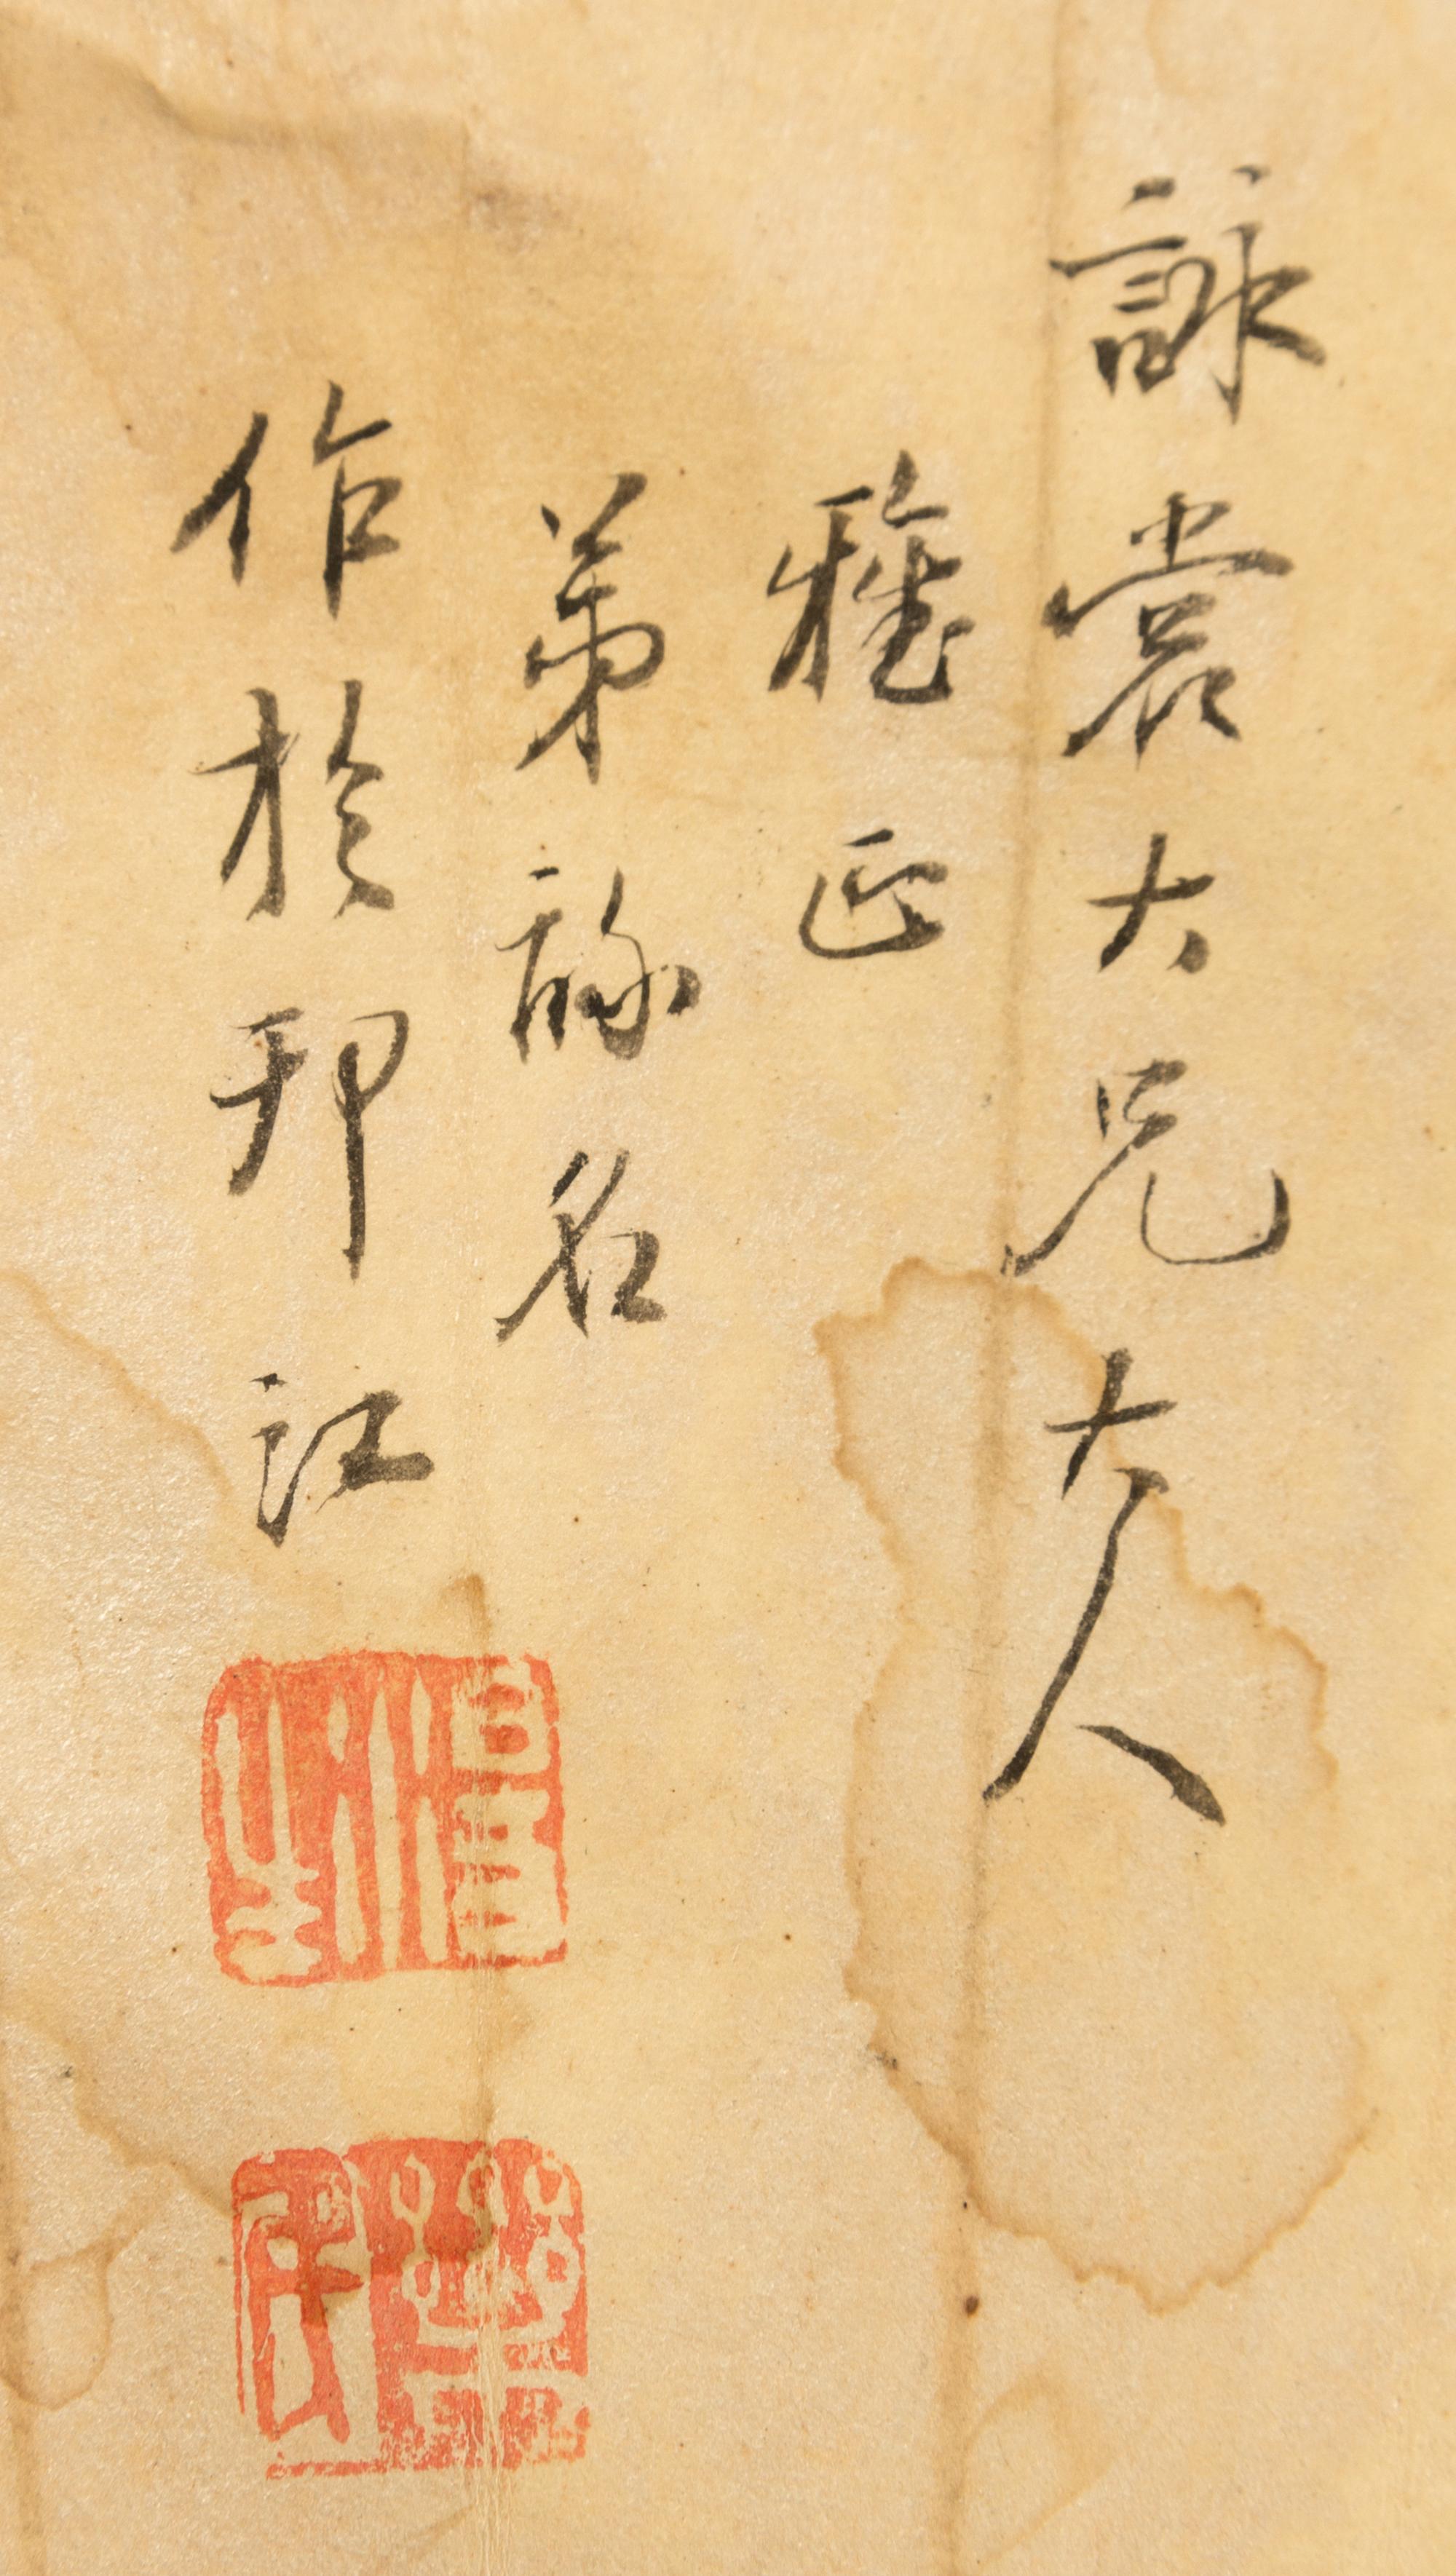 詠裳大兄大人
雅正
弟 名
作於邗江